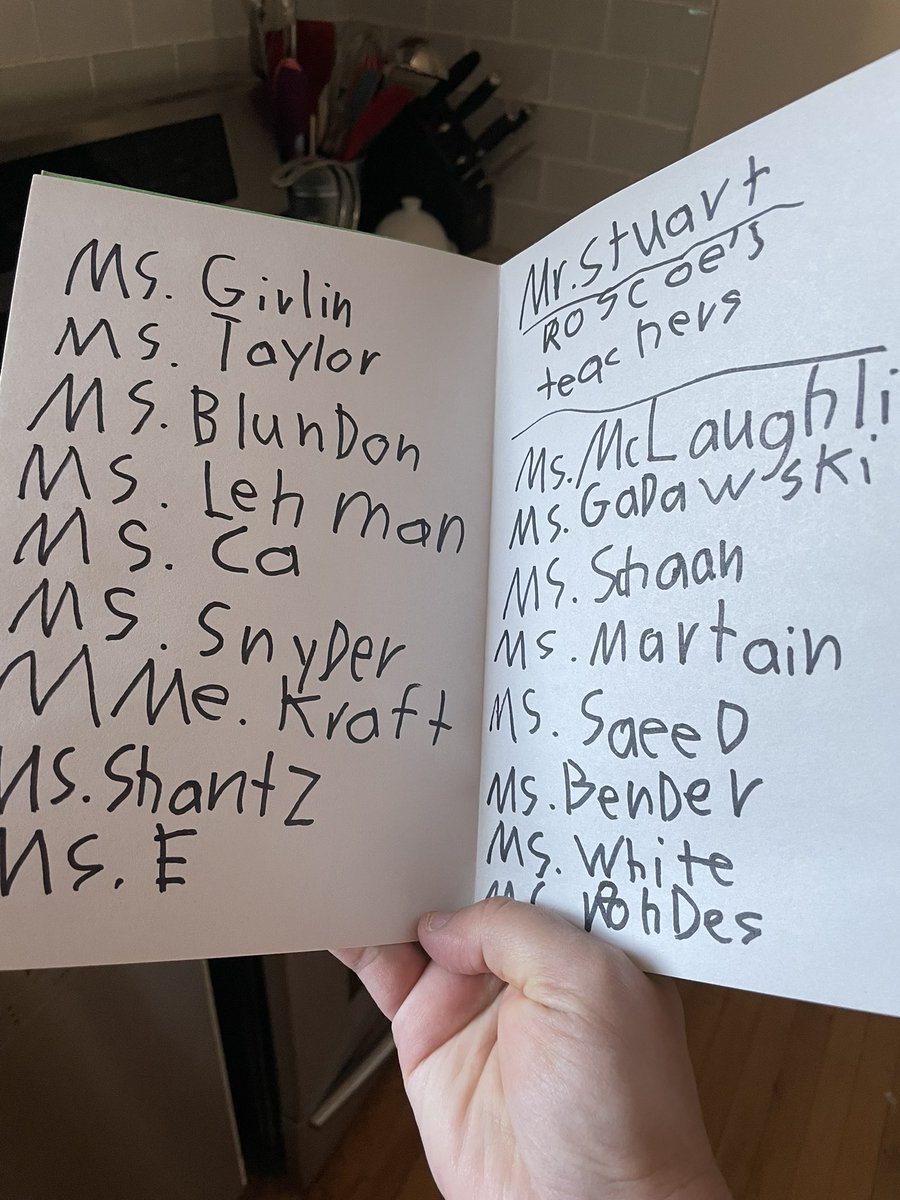 Ms. Girlin
Ms. Taylor
Ms. BlunDon
Ms. Lehman
Ms. Ca
Ms. SnyDer
MMe. Kraft
Ms. Shantz
Ms. E
Mr. Stuart
Roscoe's
teachers
Ms. McLaughli
Ms. GaDawski
Ms. Schaan
Ms. Martain
Ms. SaeeD
Ms. BenDer
Ms. White
Ms. RohDes